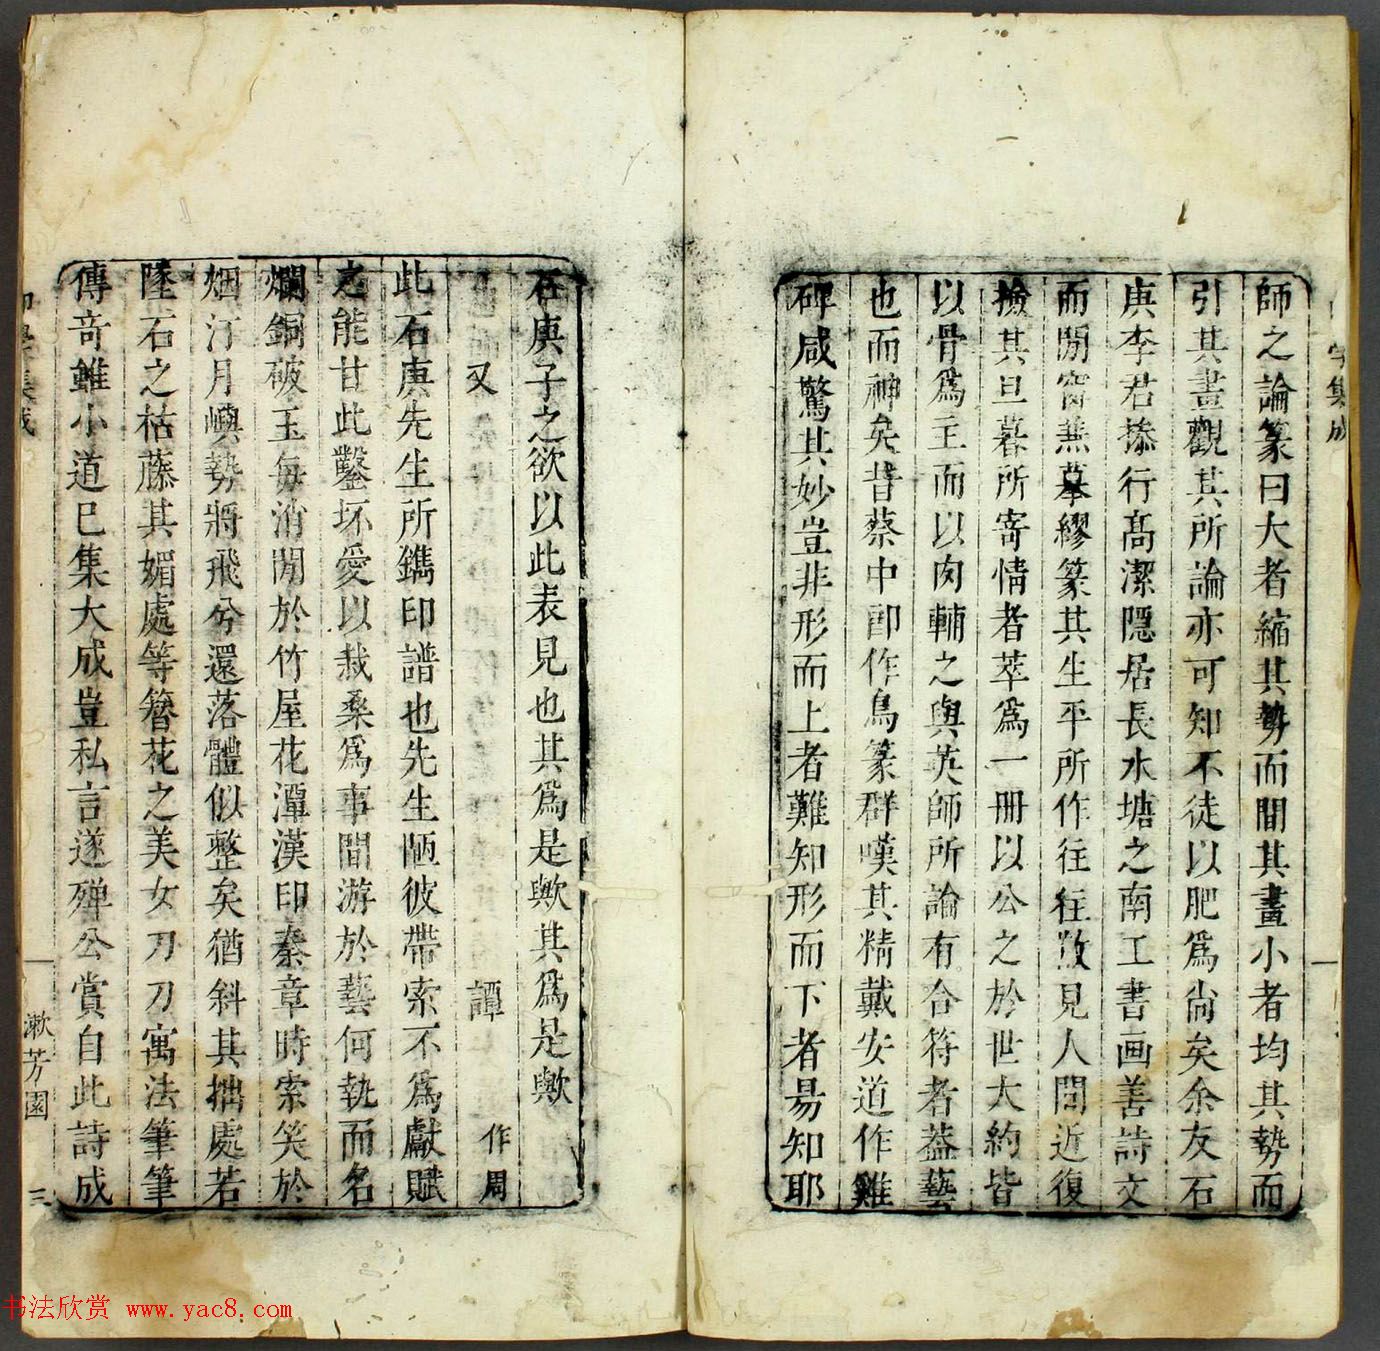 師之論篆曰大者縮其勢而間其畫小者均其勢而
引其畫觀其所論亦可知不徒以肥爲尚矣余友石
庚李君操行髙潔隱居長水塘之南工書画善詩文
而閒窗無摹繆篆其生平所作往往散見人間近復
撿其旦暮所寄情者萃爲一冊以公之於世大約皆
以骨爲主而以肉輔之與英師所論有合符者葢藝
也而神矣昔蔡中郎作鳥篆群嘆其精戴安道作雞
碑咸驚其妙豈非形而上者難知形而下者易知耶
石庚子之欲以此表見也其爲是歟其爲是歟
又 譚 作周
此石庚先生所鐫印譜也先生陋彼帶索不爲獻賦
之能甘此鑿坏愛以栽桑爲事間游於藝何執而名
爛銅破玉每消閒於竹屋花潭漢印秦章時索笑於
烟汀月嶼勢將飛兮還落體似整矣猶斜其拙處若
墜石之枯藤其媚處等簪花之美女刀刀寓法筆筆
傳奇雖小道已集大成豈私言遂殫公賞自此詩成
集成
漱芳園
三
字集成
书法欣赏 www.yac8.com